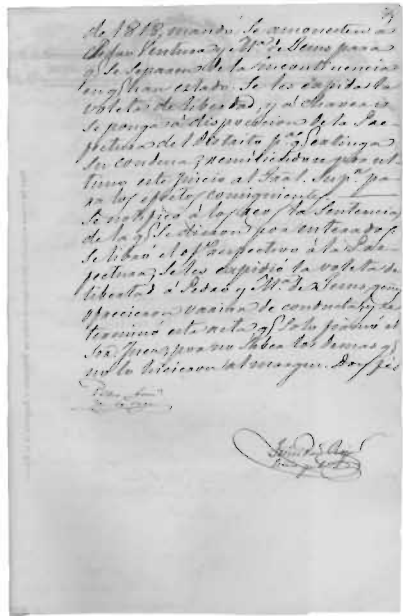 de 1818, mandó Se amonesten a
Ventura y Mª de Jesus para
q. Se Separen de la incontinencia
en q. han estado. Se les expida la
voleta de libertad, y á
Se ponga a disposicion de la Pre-
fectura del Distrito pª q. extinga
Su condena; remitiendose por ul-
timo este juicio al Sup.º pa-
ra los efectos consiguientes
Se notificó á los reos la Sentencia
de la q. Se dieron por enterados,
Se libró el of.º respectivo á la Pre-
fectura; Se les expidió la voleta de
libertad á Pedro y Mª de Jesus q.
ofrecieron variar de conducta, y se
terminó esta acta q. Solo firmó el
Sor. Juez, por no Saber los demas q.
no lo hicieron al margen. Doy fé